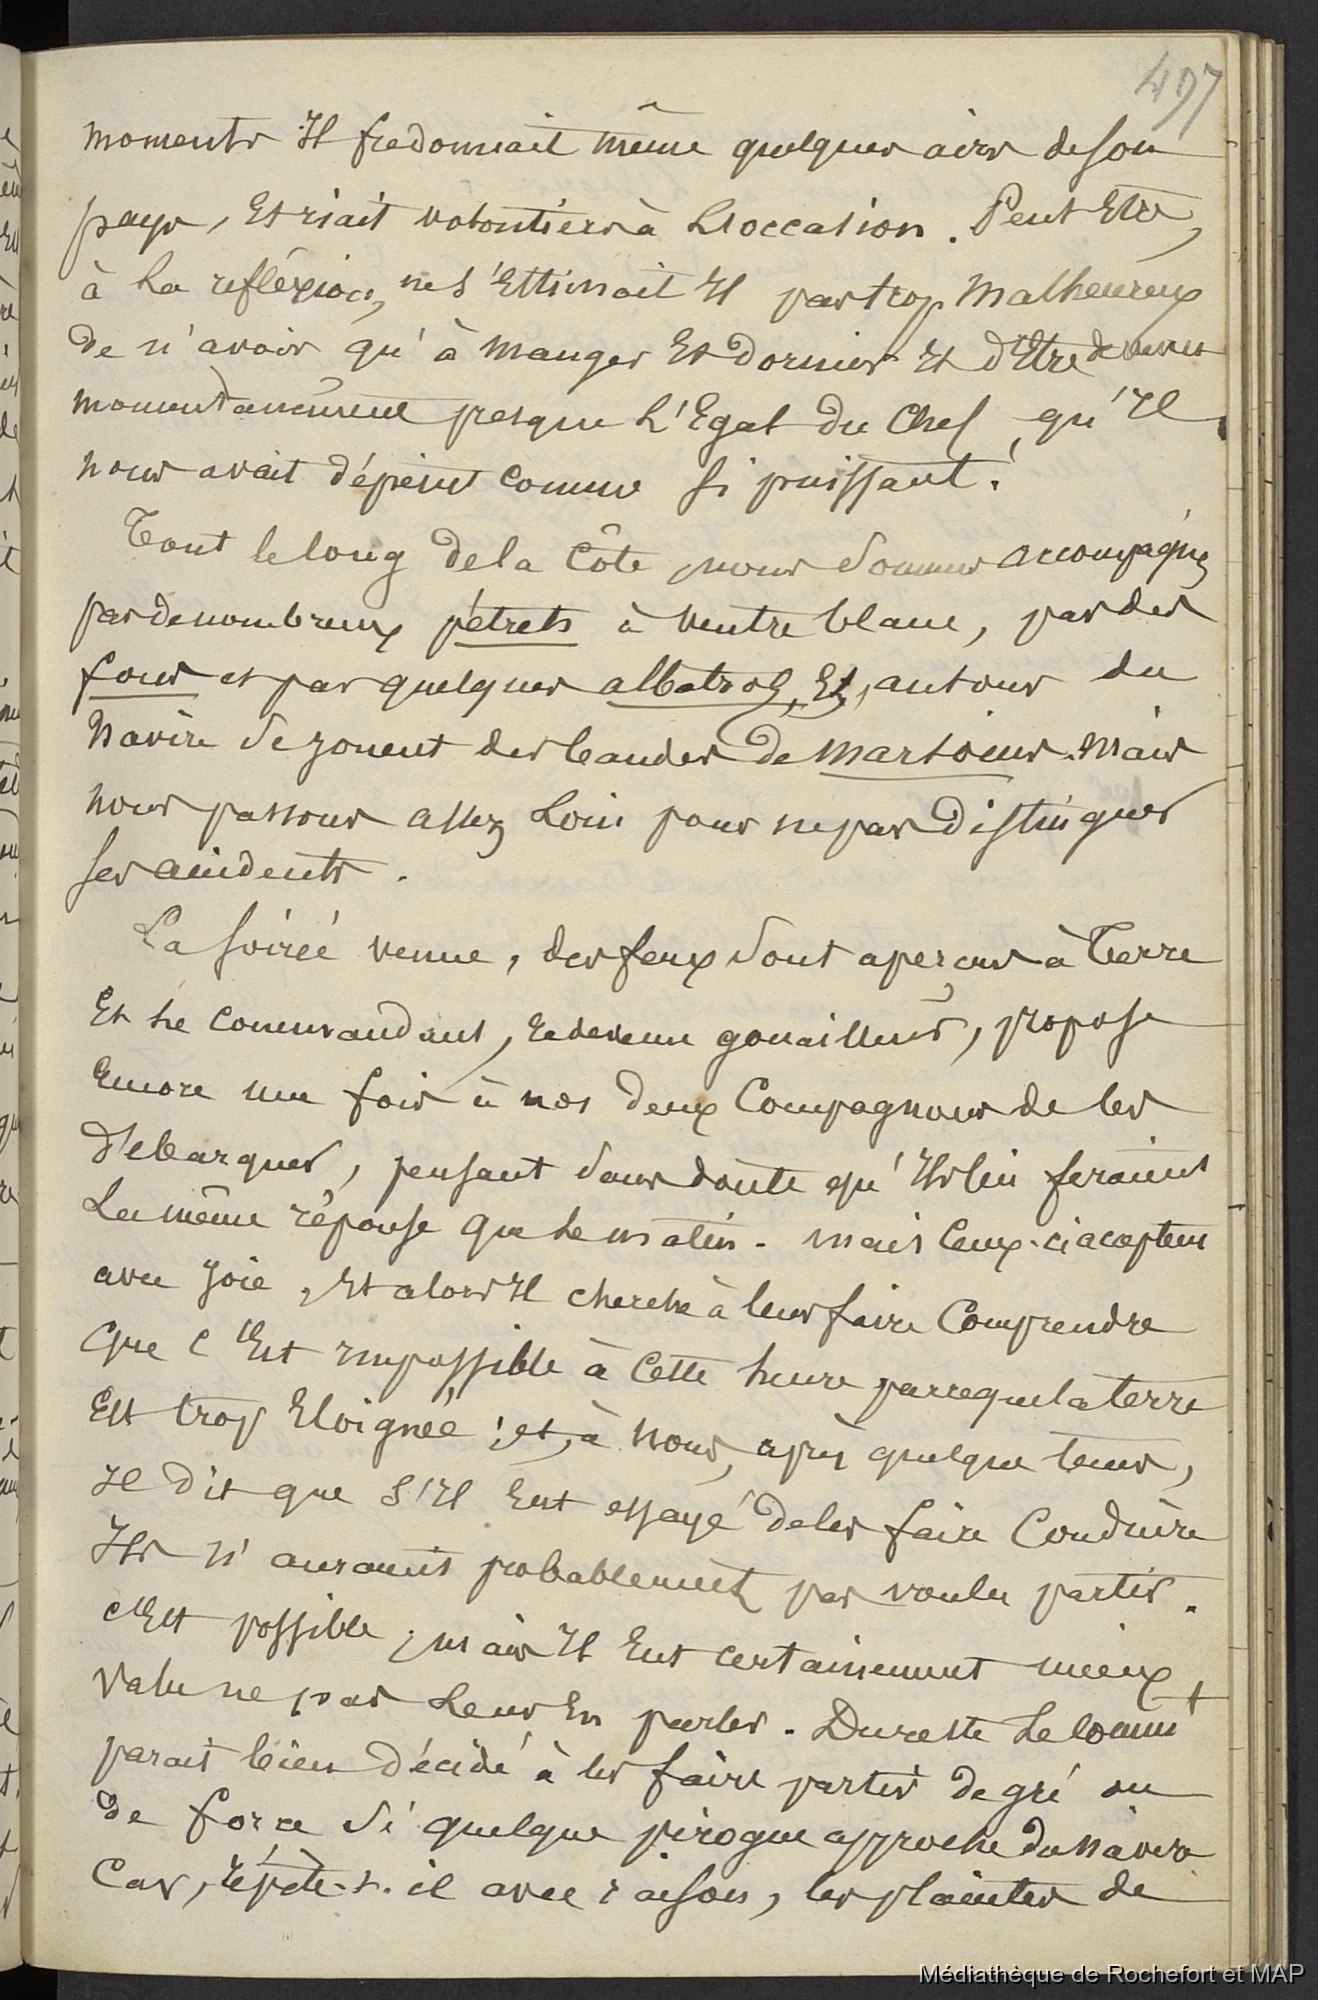 497
moments Il fredonnait même quelques airs de son
pays, Et riait volontiers à L'occasion. Peut Etre,
à La refléxion, ne s'Estimait Il pas trop Malheureux
de n'avoir qu'à Manger Et Dormir Et d'Etre devenu
momentanément presque L'Egal du Chef, qu'Il
nous avait dépeint comme si puissant!
Tout le long de la Côte, nous sommes accompagnés
par de nombreux pétrels à ventre blanc, par des
fous et par quelques albatros, Et, autour du
Navire se jouent des bandes de Marsouins. Mais
nous passons assez Loin pour ne pas distinguer
ses accidents.
La soirée venue, des feux sont aperçus à Terre
Et Le Commandant, redevenu gouailleur, propose
Encore une fois à nos deux Compagnons de les
débarquer, pensant sans doute qu'Ils lui feraient
La même réponse que Le matin. Mais Ceux-ci acceptent
avec Joie, Et alors Il cherche à leur faire Comprendre
Que c'Est Impossible à Cette heure parce que la terre
Est trop Eloignée; et, à Nous, après quelque tems,
Il dit que S'Il Eut essayé de les faire Conduire
Ils N'auraient probablement pas voulu partir.
C'Est possible, mais Il Eut certainement mieux
Valu ne pas Leur En parler. Du reste Le Commt
parait bien décidé à les faire partir de gré ou
de force si quelque pirogue approche du Navire
Car, répète-t-il avec raison, les plaintes de
Médiathèque de Rochefort et MAP